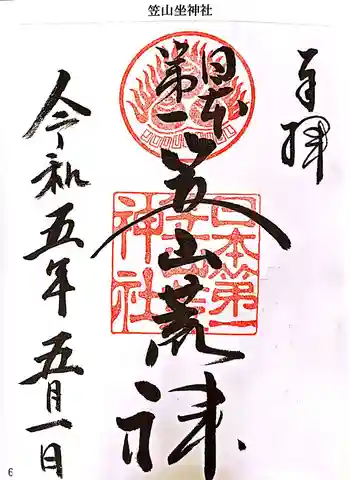 笠山坐神社
奉拝
日本
第一
笠山荒神
日本第一
神社
令和五年五月一日
6